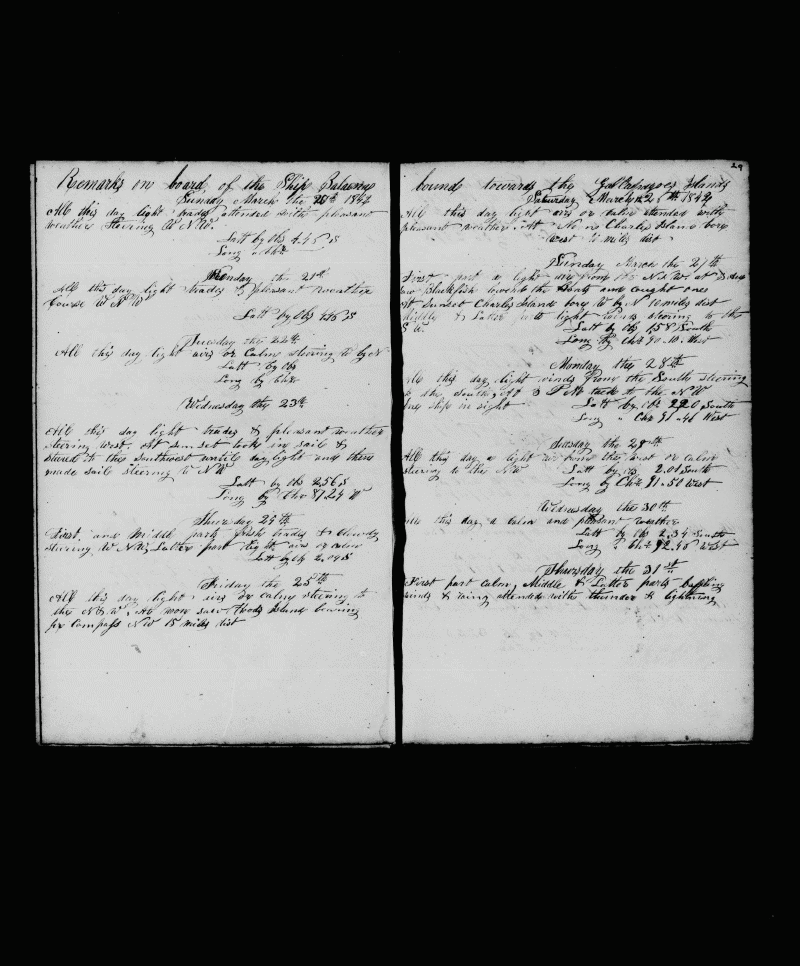 Remarks on board of the Ship Balaena
Sunday March the 20th 1842
All this day light trades attended with pleasant
weather Steering W N W
Latt by Obs 4.45 S
Long " Chr
Monday the 21st
All this day light trades & pleasant weather
Course W N W
Latt by Obs S
Tuesday the 22th
All this day light airs or Calm steering W by N
Latt by Obs
Long by Chr
Wednesday the 23th
All this day light trades & pleasant weather
steering West. At sun set took in sail &
steered to the Southwest until daylight and then
made sail steering to N W
Latt by Obs 2.56 S
Long by Chr 87.24 W
Thursday 24th
First and Middle parts fresh trades & cloudy
steering W N W Latter part light airs or calm
Latt by Obs 2.04 S
Friday the 25th
All this day light airs or calm steering to
the N & W. At noon saw Hoods Island bearing
per Compass N W 15 miles dist
29
bound towards the Gallapagoes Islands
Saturday March the 26th 1842
All this day light airs or calm attended with
pleasant weather. At Noon Charles Island bore
West miles dist
Sunday March the 27th
First part a light air from the N & W. at
saw Blackfish lowered the Boats and caught one
At Sunset Charles Island bore W by N 10 miles dist
Middle & Latter parts light winds steering to the
S W. Latt by Obs 1.58 South
Long by Chr 90.10 West
Monday the 28th
All this day light winds from the South steering
to the South at 3 P M tack to the N W
one ship in sight Latt by Obs 2.20 South
Long " Chr 91.46 West
Tuesday the 29th
All this day a light air from the West or calm
steering to the N W Latt by Obs 2.01 South
Long by Chr 91.50 West
Wednesday the 30th
All this day a calm and pleasant weather
Latt by Obs 2.34 South
Long " Chr 92.46 West
Thursday the 31st
First part calm, Middle & Latter parts baffling
winds & rain attended with thunder & lightning